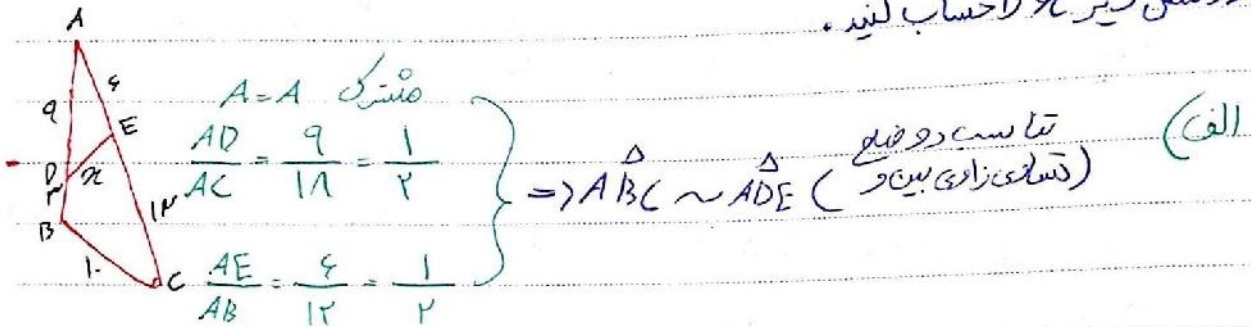 شکل زیر x را حساب کنید.
الف)
A
۹
۶
E
D
x
۳
B
۱۲
۱۰
C
A = A مشترک
AD/AC = ۹/۱۸ = ۱/۲
AE/AB = ۶/۱۲ = ۱/۲
=> ABC ~ ADE ( تناسب دو ضلع
تساوی زاویه بین و)